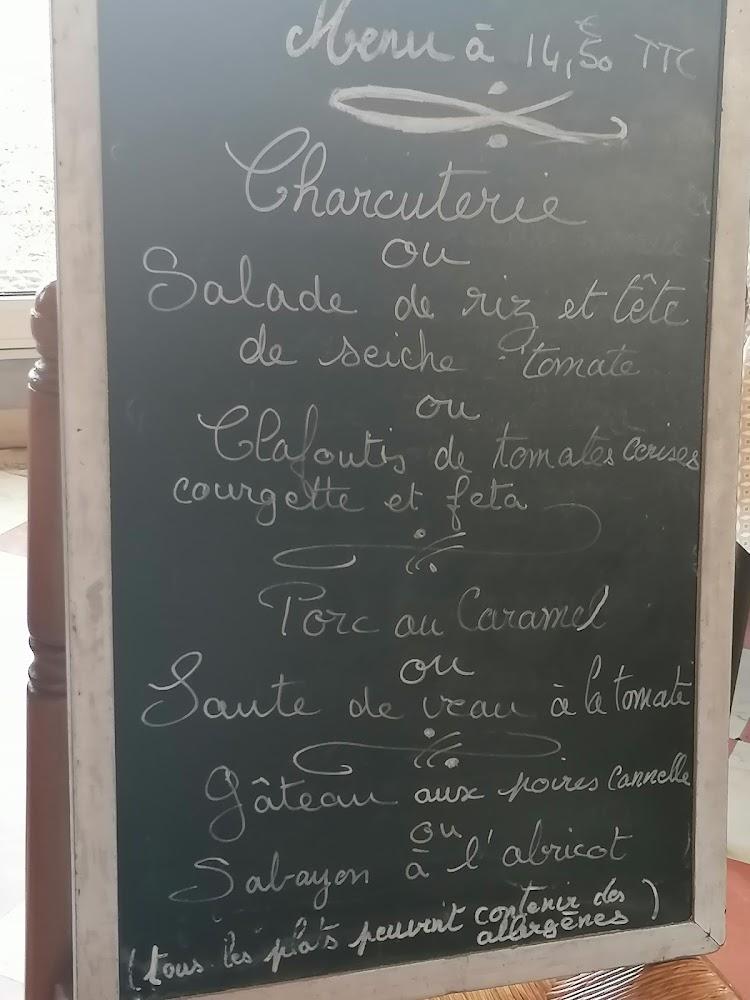 Menu à 14,50 € TTC
Charcuterie
ou
Salade de riz et tête
de seiche - tomate
ou
Clafoutis de tomates cerises
courgette et feta
Porc au Caramel
ou
Saute de veau à la tomate
Gâteau aux poires cannelle
ou
Sabayon à l'abricot
(tous les plats peuvent contenir des
allergènes)